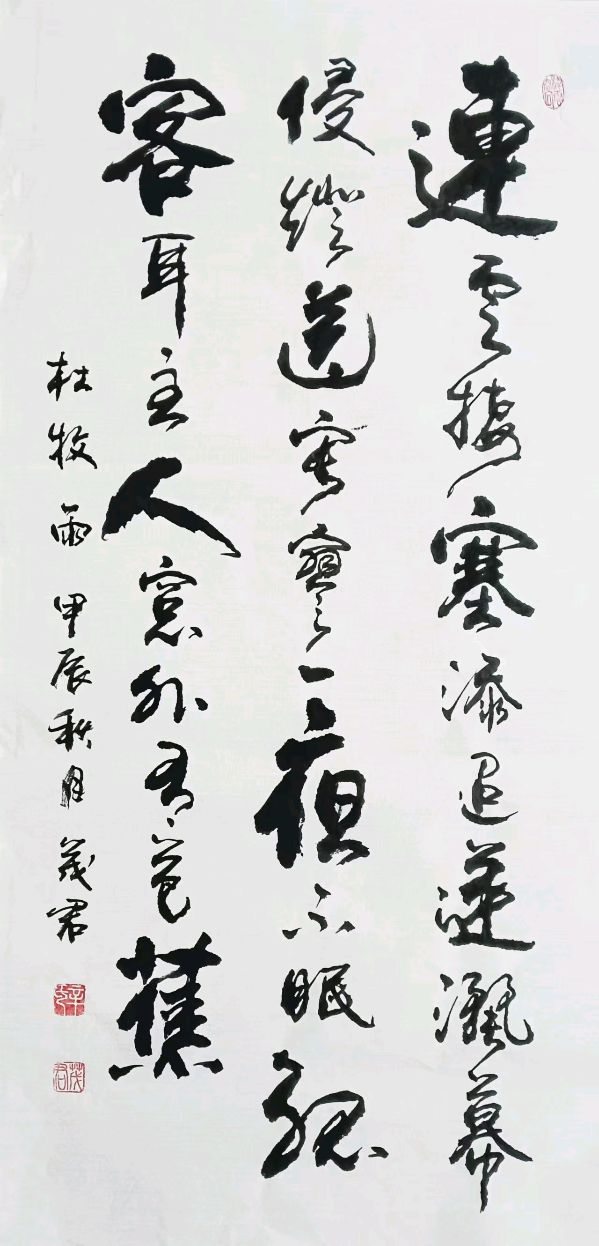 連雲接塞添迢遞灑幕
侵燈送寂寥一夜不眠孤
客耳主人窗外有芭蕉
杜牧雨 甲辰秋月 茂君
茂君